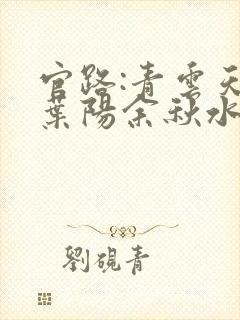 官路:青雲天
葉陽余秋水
劉硯青